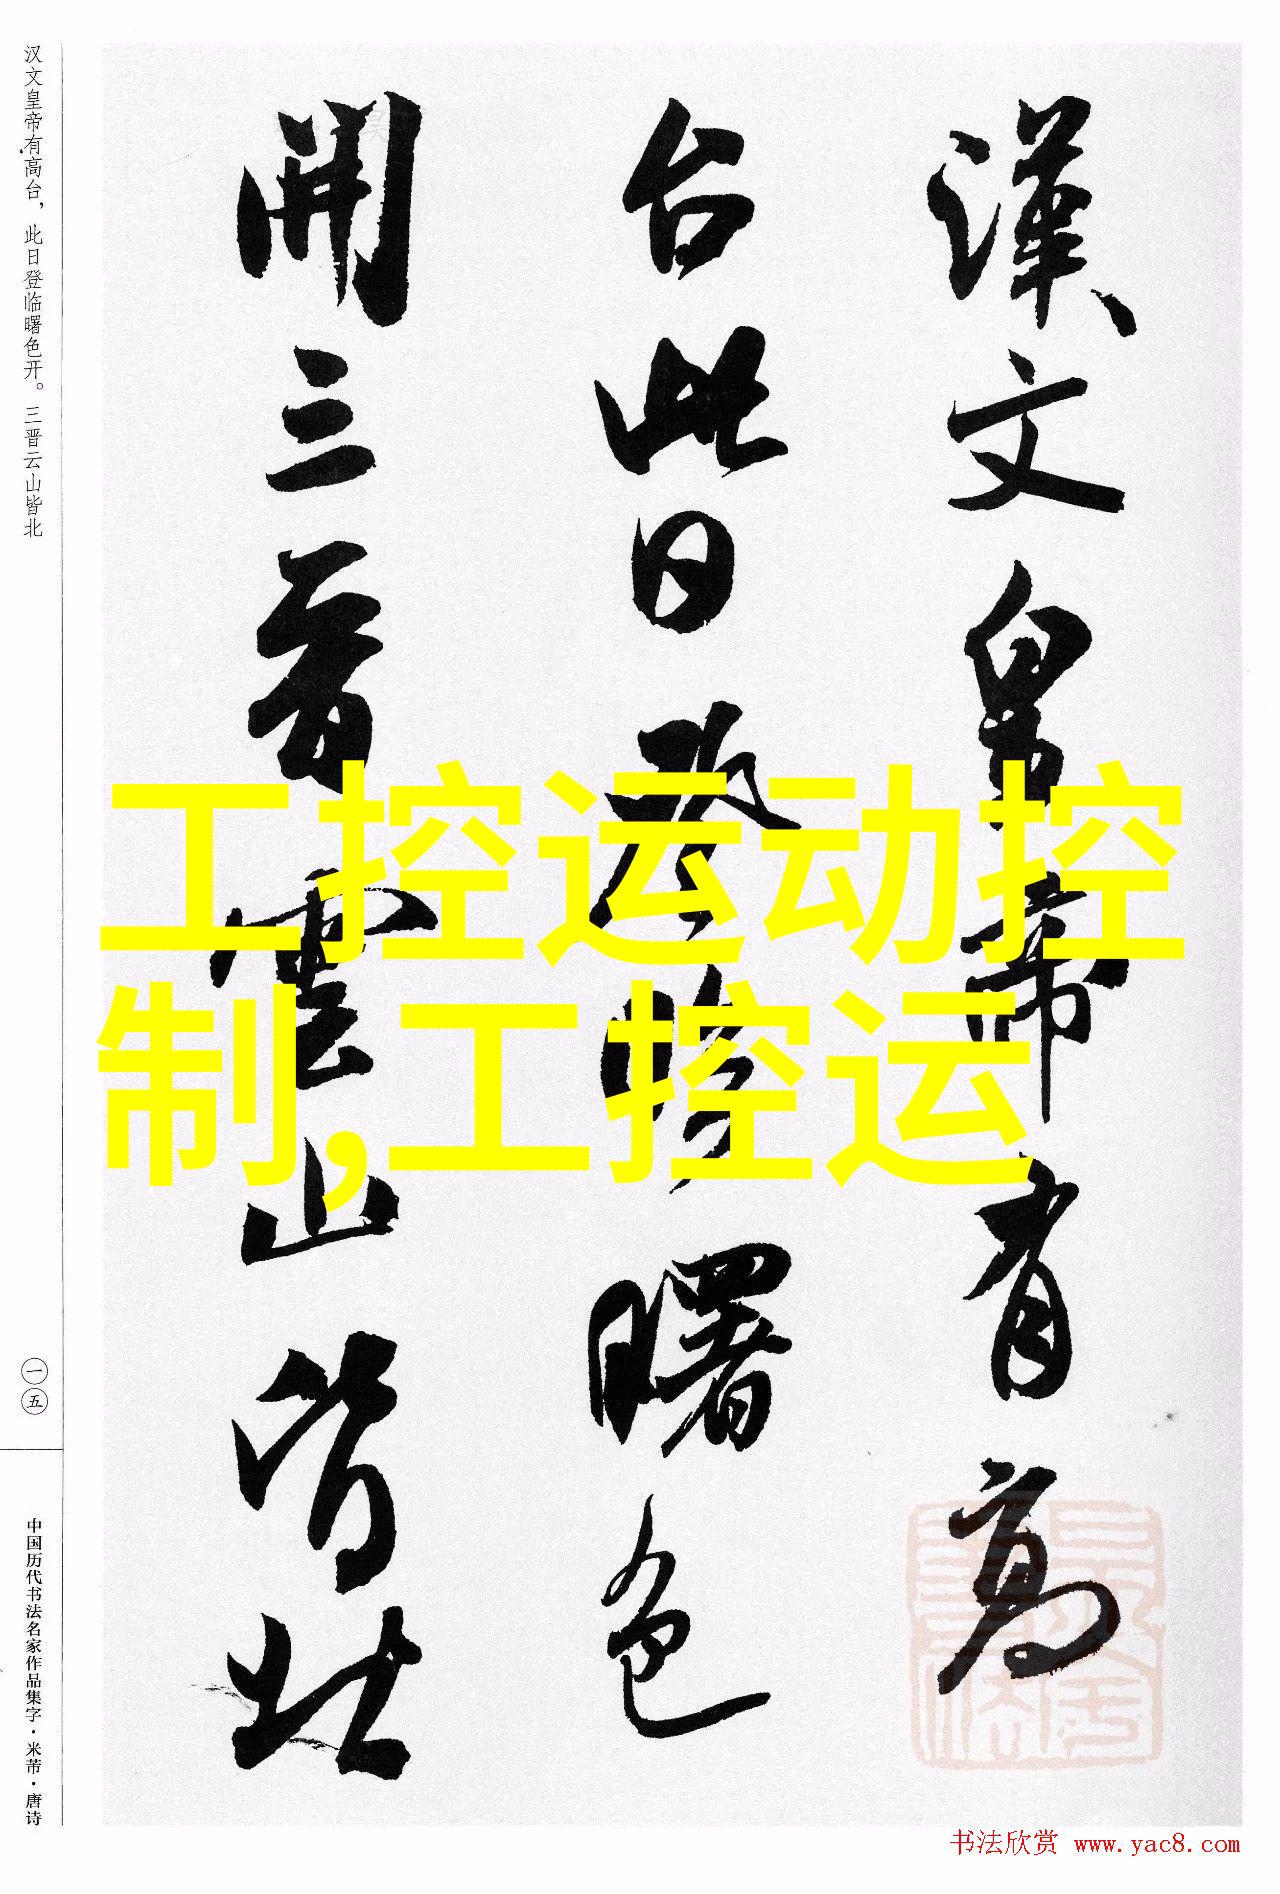 漢文皇帝有高
台此日登临曙色
開三晋雲山皆北
工控运动控
制,工控运
汉文皇帝有高台，此日登临曙色开。三晋云山皆北
一五
中国历代书法名家作品集字·米芾·唐诗
书法欣赏 www.yac8.com